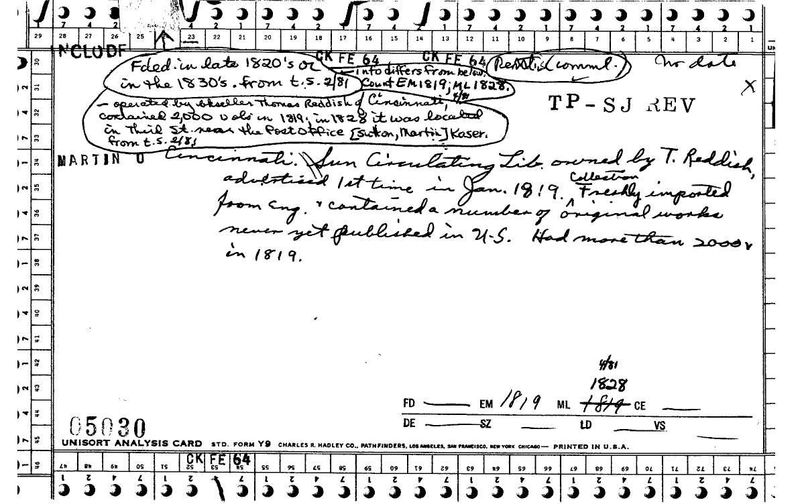 29 28 27 26 25 23 22 21 20 19 18 17 16 15 14 13 12 11 10 9 8 7 6 5 4 3 2 1
INCLUDE
CK FE 64 CK FE 64 Reddish comml. No date
Fded. in late 1820's or
in the 1830's. from t.s. 2/81
info differs from below.
Count EM1819, ML1828.
X
TP-SJ REV
- operated by bkseller Thomas Reddish of Cincinnati, 4/81
contained 2,000 vols in 1819, in 1828 it was located
in Third St. near the Post Office [Sutton, Martin] Kaser.
from t.s. 2/81
MARTIN O Cincinnati. Sun Circulating Lib. owned by T. Reddish,
advertised 1st time in Jan. 1819. Collection Freshly imported
from Eng. & contained a number of original works
never yet published in U-S. Had more than 2000 v
in 1819.
4/81
1828
FD EM 1819 ML 1819 CE
DE SZ LD VS
05030
UNISORT ANALYSIS CARD STD. FORM Y9 CHARLES R. HADLEY CO., PATHFINDERS, LOS ANGELES, SAN FRANCISCO, NEW YORK CHICAGO — PRINTED IN U.S.A.
CK FE 64